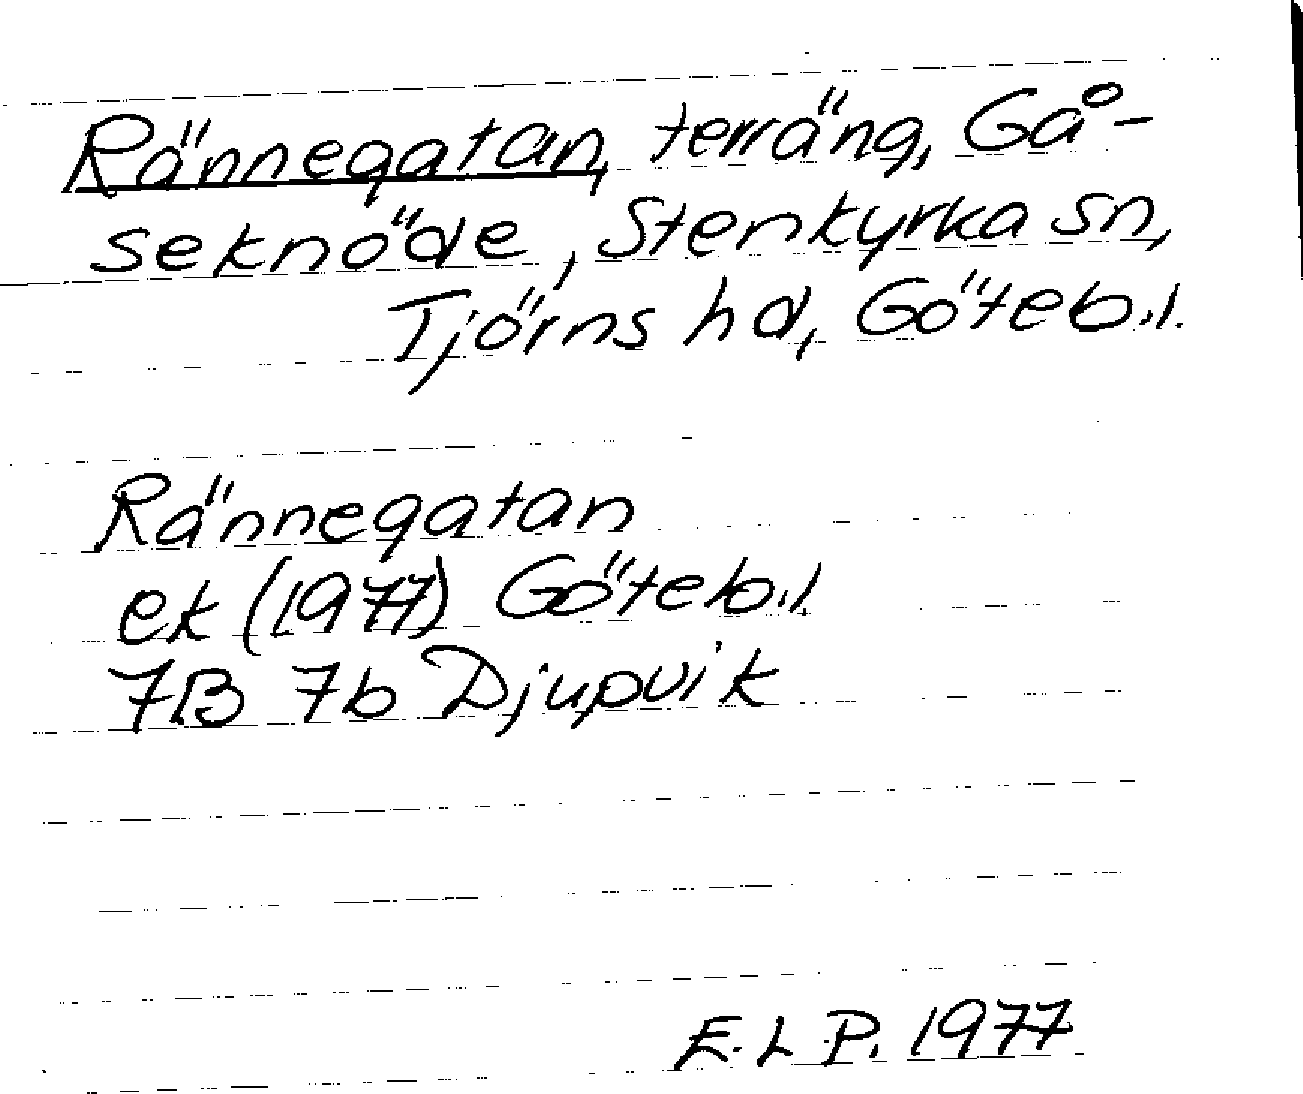 Rännegatan, terräng, Gå-
seknöde, Stenkyrka sn,
Tjörns hd, Göteb.l.
Rännegatan
ek (1977) Göteb.l
7B 7b Djupvik
E.L.P. 1977